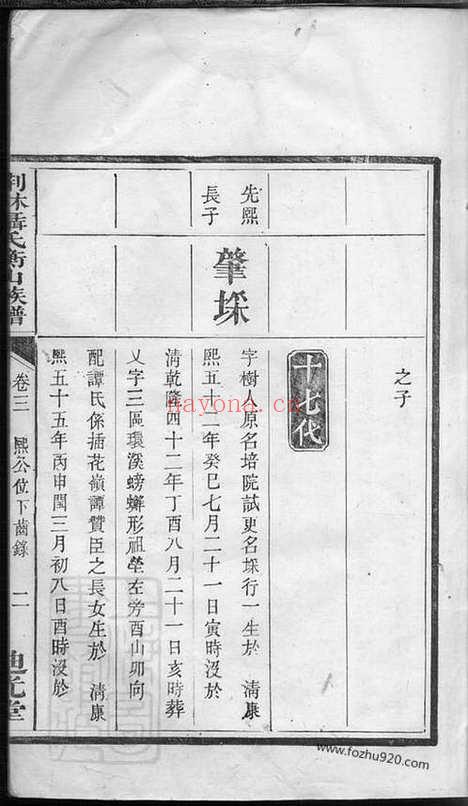 之子
十七代
先熙
長子
肇埰
字樹人原名培院試更名埰行一生於　清康
熙五十二年癸巳七月二十一日寅時没於
清乾隆四十二年丁酉八月二十一日亥時葬
乂字三區環溪螃蠏形祖塋左旁酉山卯向
配譚氏係插花嶺譚贊臣之長女生於　清康
熙五十五年丙申閏三月初八日酉時没於
氏衡山族譜
卷三　熙公位下齒錄　二
堂
nayona.cn
www.fozhu920.com